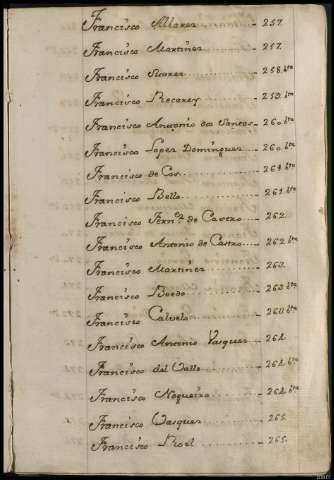 Francisco Alvarez - 257.
Francisco Martinez - 257.
Francisco Suarez - 258. bta
Francisco Recarey - 259. bta
Francisco Antonio dos Santos - 260. bta
Francisco Lopez Dominguez - 260. bta
Francisco de Cos - 261. bta
Francisco Bello - 261. bta
Francisco Fern.z de Castro - 262.
Francisco Antonio de Castro - 262. bta
Francisco Martinez - 263.
Francisco Boedo - 263. bta
Francisco Calvelo - 263. bta
Francisco Antonio Vasquez - 264.
Francisco del Valle - 264. bta
Francisco Nogueira - 264. bta
Francisco Vasquez - 265.
Francisco Roel - 265.